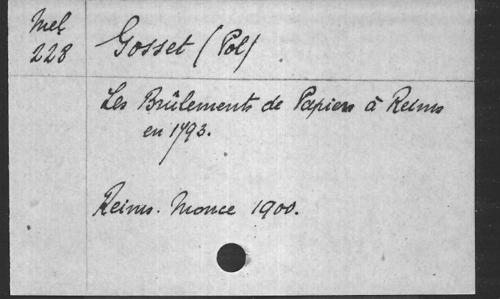 Mel
228
Gosset (Pol)
Les Brûlements de Papiers à Reims
en 1793.
Reims. Monce 1900.